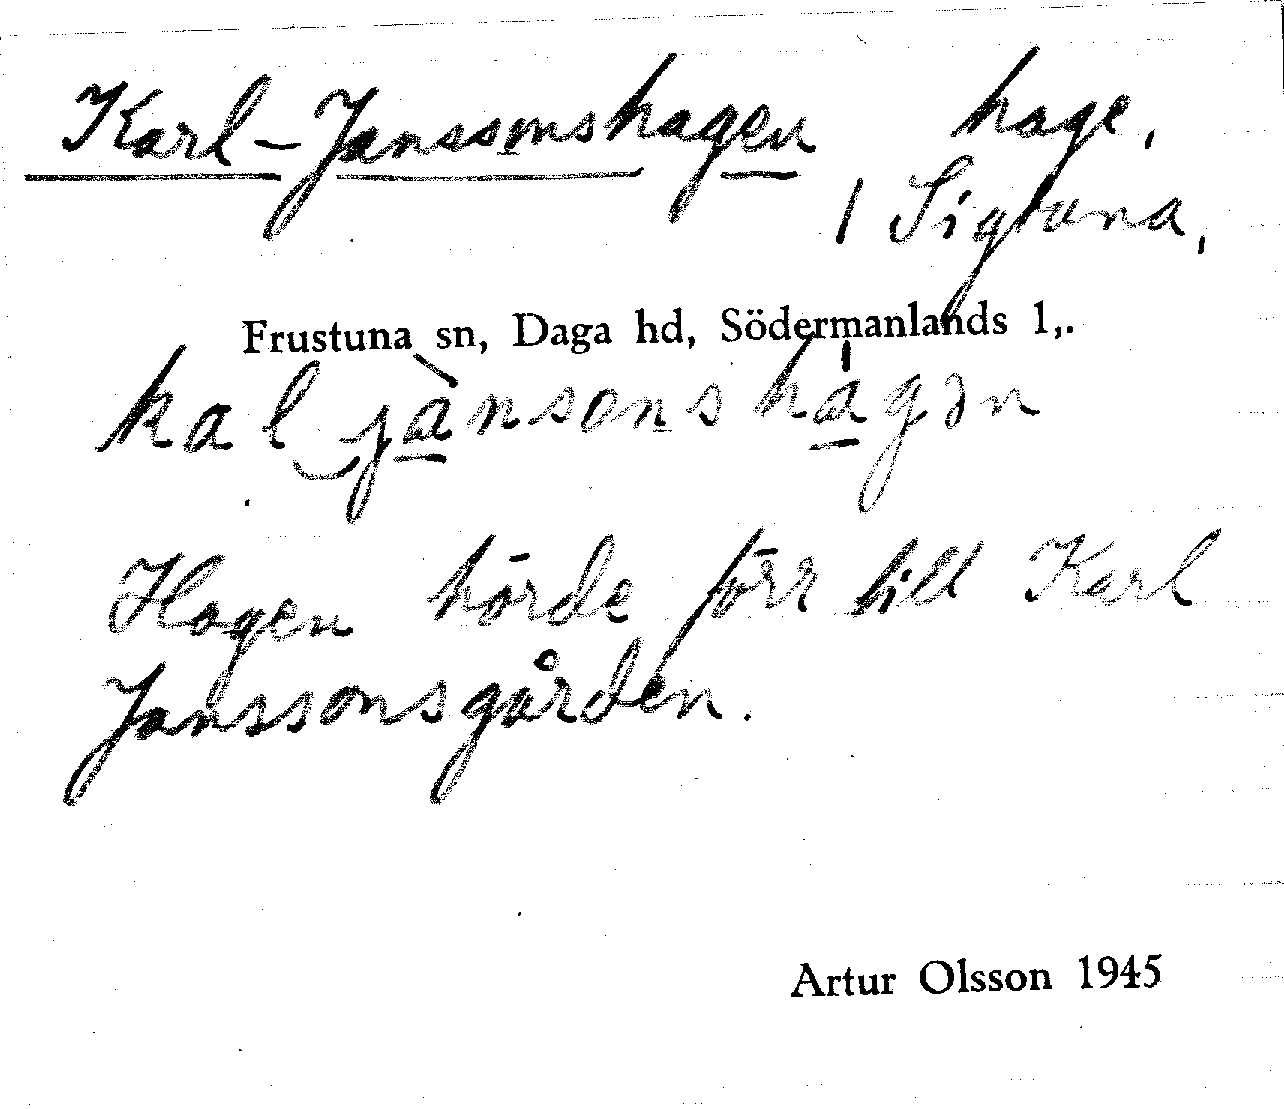 Karl-Janssonshagen hage,
/ Sigtuna,
Frustuna sn, Daga hd, Södermanlands l,.
kal jànsonshágən
Hagen hörde förr till Karl
Janssonsgården.
Artur Olsson 1945